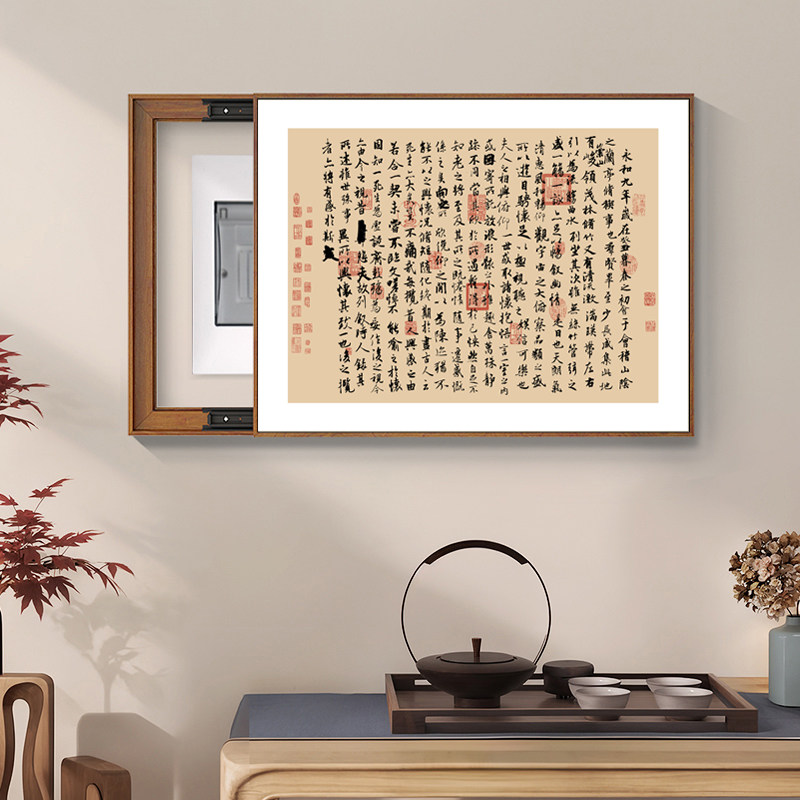 永和九年歲在癸丑暮春之初會于會稽山陰
之蘭亭脩禊事也羣賢畢至少長咸集此地
有崇山峻領茂林脩竹又有清流激湍暎帶左右
引以為流觴曲水列坐其次雖無絲竹管弦之
盛一觴一詠亦足以暢敘幽情是日也天朗氣
清惠風和暢仰觀宇宙之大俯察品類之盛
所以遊目騁懷足以極視聽之娛信可樂也
夫人之相與俯仰一世或取諸懷抱悟言一室之內
或因寄所託放浪形骸之外雖趣舍萬殊靜
躁不同當其欣於所遇暫得於己快然自足不
知老之將至及其所之既惓情隨事遷感慨
係之矣向之所欣俛仰之閒以為陳迹猶不
能不以之興懷況脩短隨化終期於盡古人云
死生亦大矣豈不痛哉每攬昔人興感之由
若合一契未嘗不臨文嗟悼不能喻之於懷
固知一死生為虛誕齊彭殤為妄作後之視今
亦由今之視昔悲夫故列敘時人錄其
所述雖世殊事異所以興懷其致一也後之攬
者亦將有感於斯文